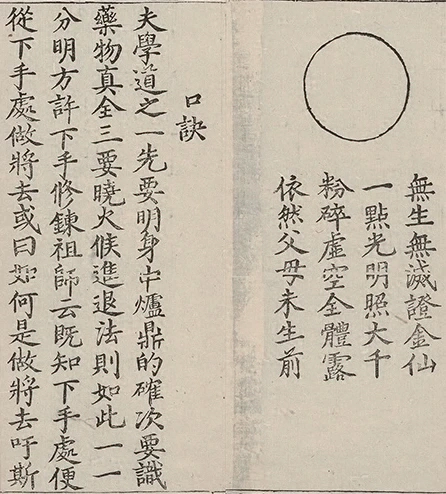 無生無滅證金仙
一點光明照大千
粉碎虛空全體露
依然父母未生前
口訣
夫學道之一先要明身中爐鼎的確次要識
藥物真全三要曉火候進退法則如此一一
分明方許下手修鍊祖師云既知下手處便
從下手處做將去或曰如何是做將去吁斯